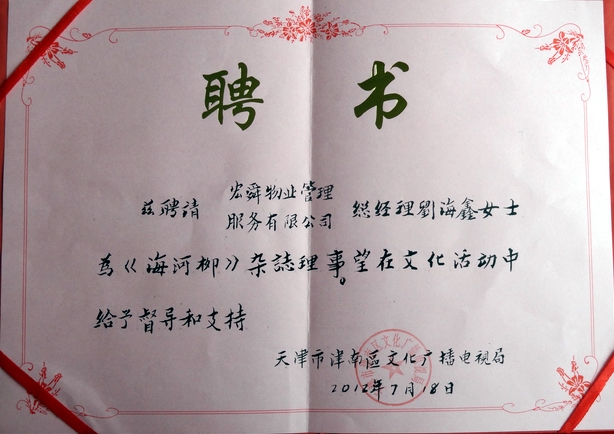 聘书
兹聘请 宏舜物业管理
服务有限公司 总经理劉海鑫女士
为《海河柳》杂誌理事。望在文化活动中
给予督导和支持
天津市津南區文化广播电视局
2012年7月18日